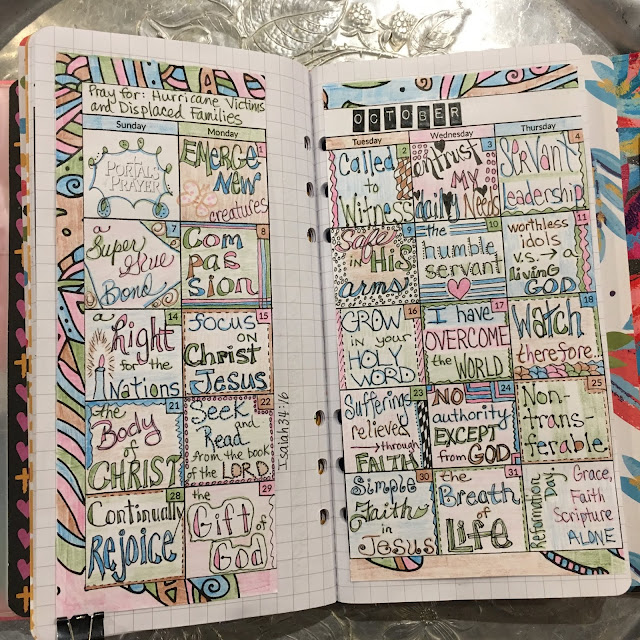 Pray for: Hurricane Victims
and Displaced Families
Sunday
Monday
PORTALS
of
PRAYER
1
EMERGE
New
creatures
7
a
Super Glue
Bond
8
Com
pas
sion
14
a Light
for the
Nations
15
focus
ON
Christ
Jesus
21
the
Body
of
CHRIST
22
Seek
and
Read
from the book
of the LORD
Isaiah 34:16
28
Continually
Rejoice
29
the
Gift of
God
OCTOBER
Tuesday
Wednesday
Thursday
2
Called
to
Witness
3
entrust
MY
daily Needs
4
Servant
Leadership
9
Safe
IN HIS
arms
10
the
humble
servant
11
worthless
idols
v.s. → a
living
GOD
16
GROW
in your
HOLY
WORD
17
I have
OVERCOME
the WORLD
18
Watch
therefore
23
Suffering
relieved
→through
FAITH
24
NO
authority
EXCEPT
from GOD
25
Non-
trans-
ferable
30
Simple
Faith
in
Jesus
31
the
Breath
of
Life
Reformation
Day
Grace,
Faith
Scripture
ALONE